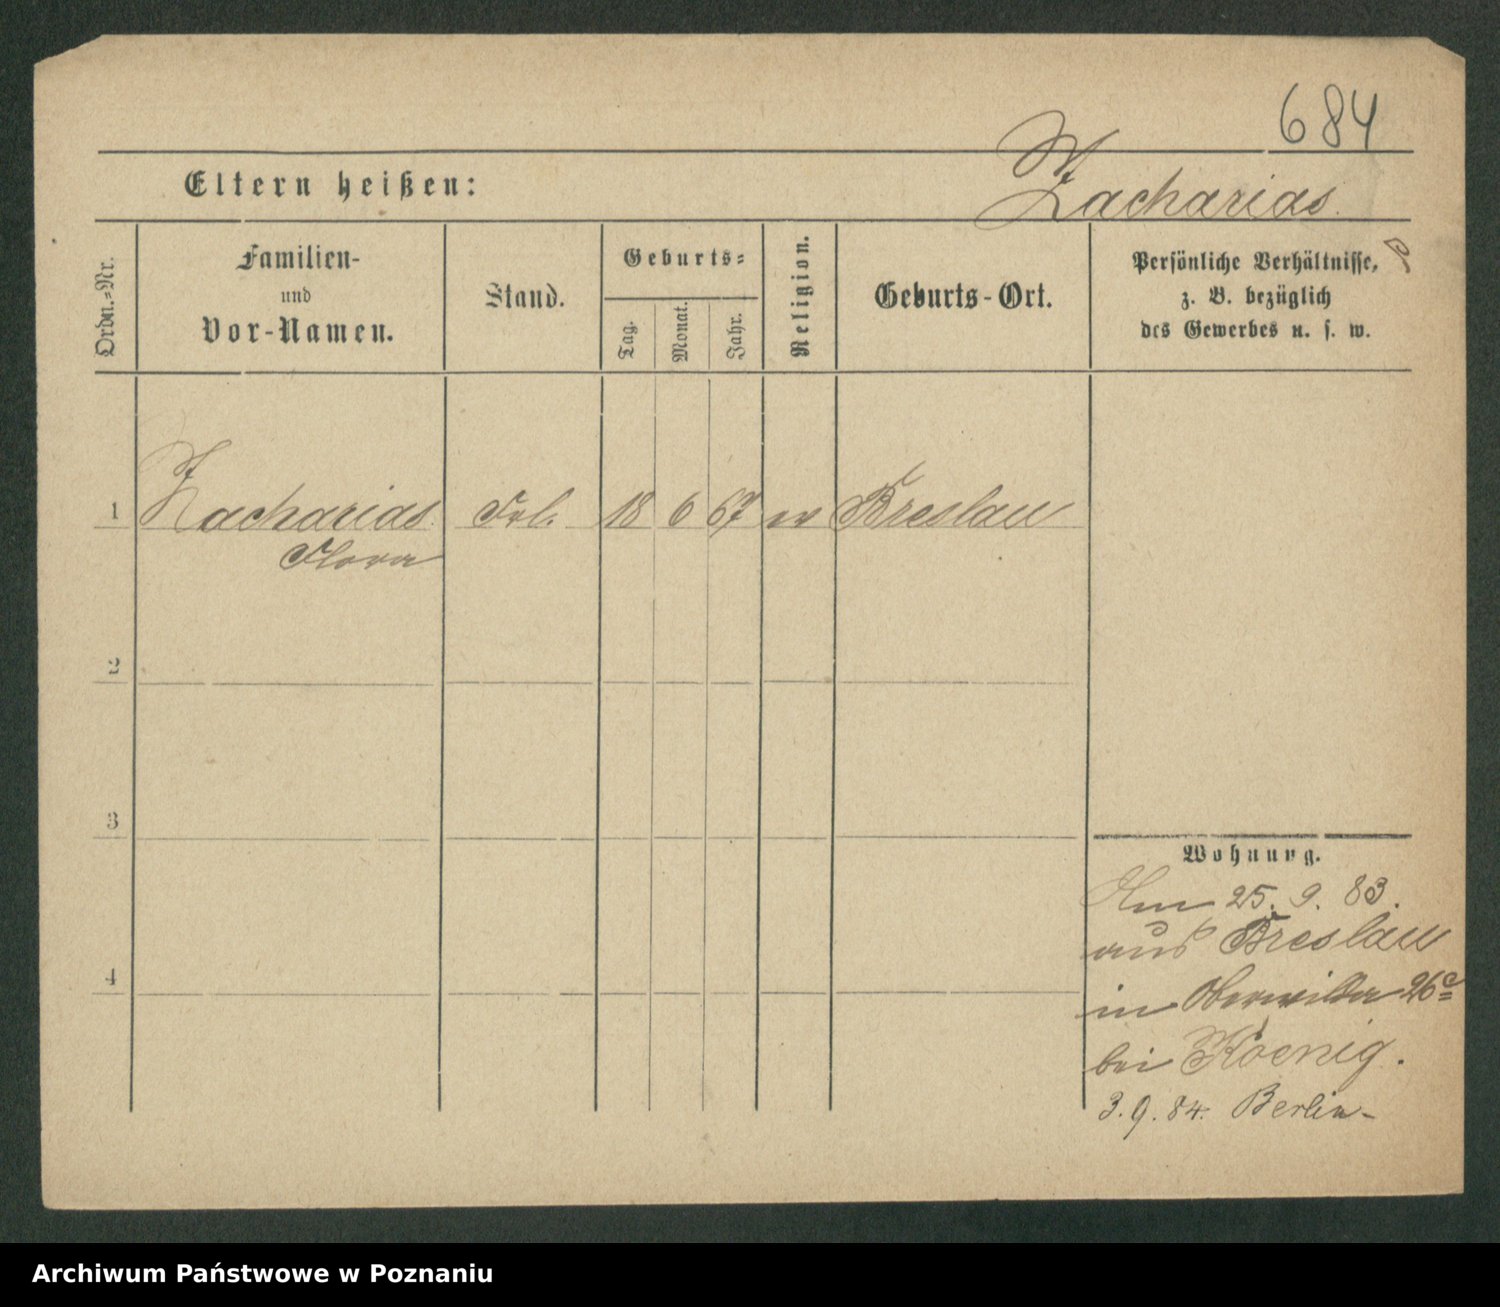 684
Eltern heißen:
Zacharias
Ordn.=Nr.
Familien-
und
Vor-Namen.
Stand.
Geburts=
Tag.
Monat.
Jahr.
Religion.
Geburts-Ort.
Persönliche Verhältnisse,
z. B. bezüglich
des Gewerbes u. s. w.
1 Zacharias Frl. 18 6 67 ev Breslau
Flora
2
3
4
Wohnung.
Am 25. 9. 83.
aus Breslau
in Oberwilda 26c
bei Koenig.
3. 9. 84. Berlin-
Archiwum Państwowe w Poznaniu